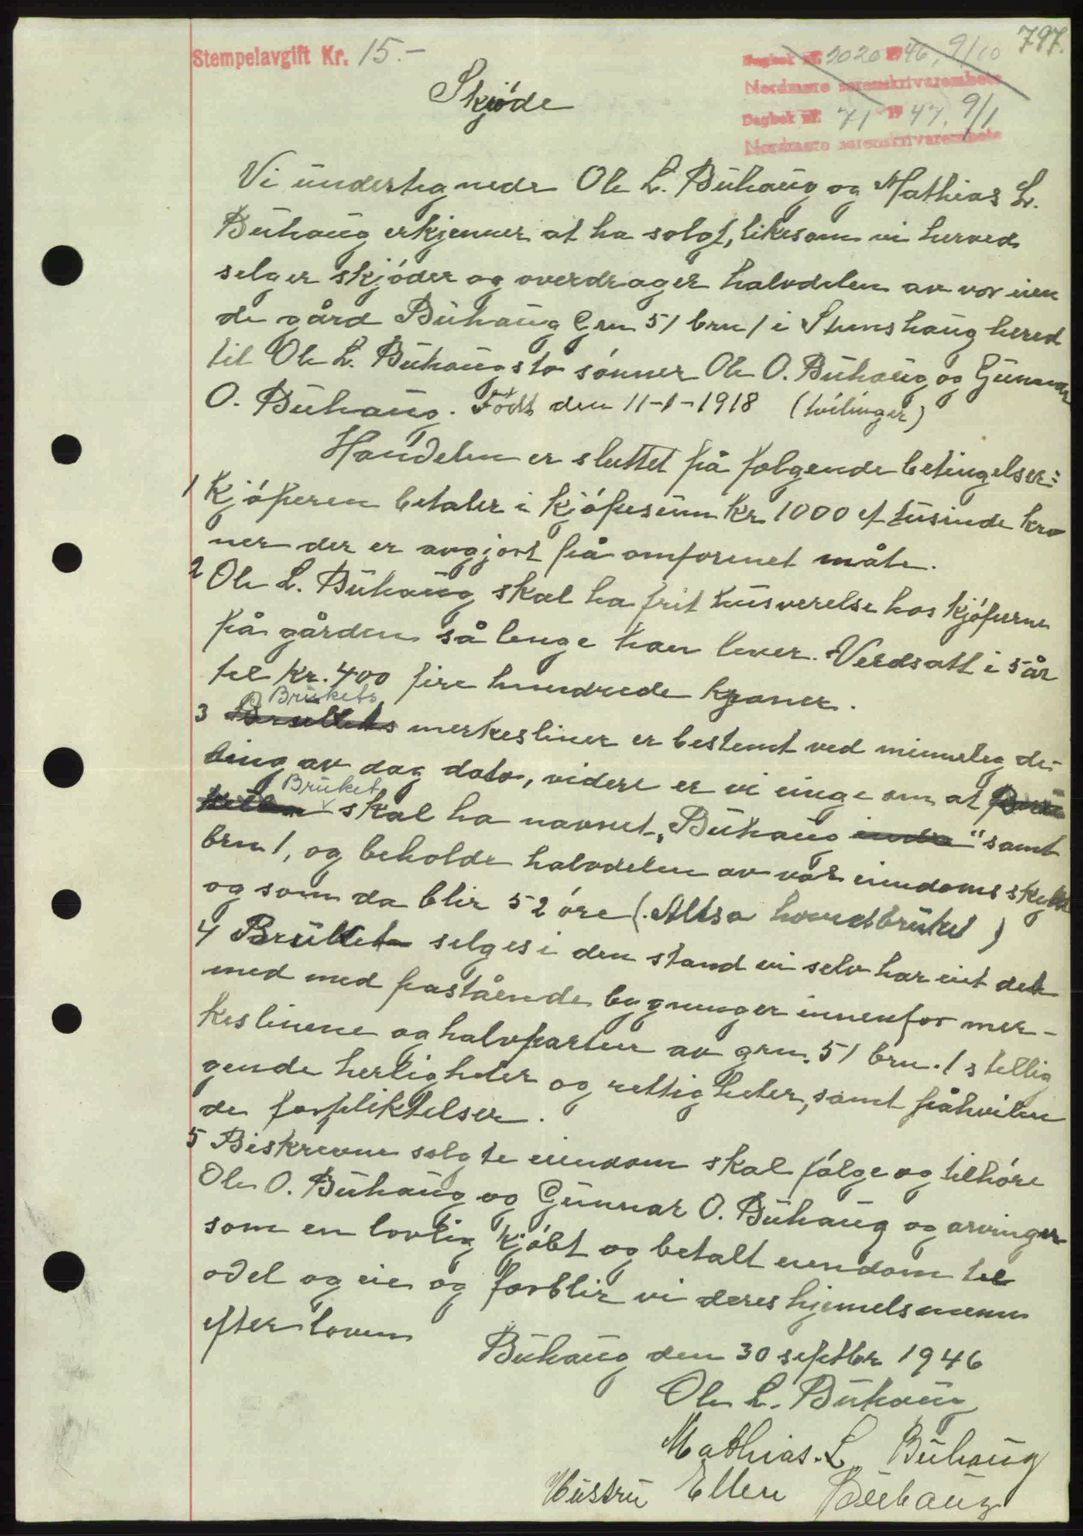 797.
Stempelavgift Kr. 15.-
Dagbok nr. 2020 1946, 9/10
Nordmøre sorenskriverembete
Dagbok nr. 71 1947, 9/1
Nordmøre sorenskriverembete
Skjøde
Vi undertegnede Ole L. Búhaúg og Mathias L.
Búhaúg erkjenner at ha solgt, likesom vi herved
selger skjøder og overdrager halvdelen av vor eien
de gård Búhaúg Grn 51 brn 1 i Stemshaug herred
til Ole L. Búhaugs to sønner Ole O. Búhaúg og Gúnnar
O. Búhaúg. Født den 11-1-1918 (tvilinger)
Handelen er sluttet på følgende betingelser:
1 Kjøperen betaler i kjøpesúm Kr 1000 et túsinde kro
ner der er avgjort på omforenet måte.
2 Ole L. Búhaúg skal ha frit húsverelse hos kjøperne
på gården så lenge han lever. Verdsatt i 5 år
til kr. 400 fire hundrede kroner.
Brúkets
3 merkesliner er bestemt ved minnelig de-
ling av dag dato, videre er vi einge om at
Brúket
skal ha navnet, "Búhaúg indre" samt
brn 1, og beholde halvdelen av vår eiendoms skyld
og som da blir 52 øre (Altså hovedbrúket)
4 Brúket selges i den stand vi selv har eiet det
med med påstående bygninger innenfor mer-
keslinene og halvparten av grn. 51 brn. 1 s tillig
gende herligheter og rettigheter, samt påhvilen
de forpliktelser.
5 Beskrevne solgte eiendom skal følge og tilhøre
Ole O. Búhaúg og Gúnnar O. Búhaúg og arvinger
som en lovlig kjøbt og betalt eiendom til
odel og eie og forblir vi deres hjemelsmenn
efter loven
Búhaúg den 30 septbr 1946
Ole L. Búhaúg
Mathias. L Búhaúg
Hústrú Ellen Búhaúg